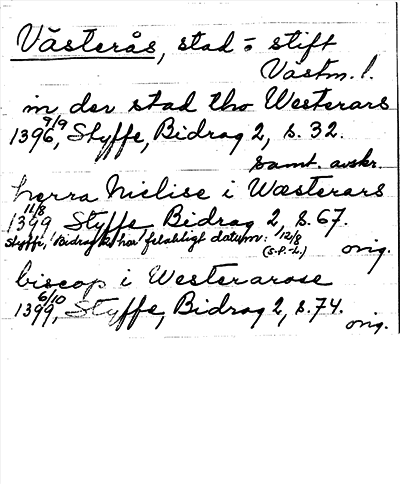 Västerås, stad o stift
Västm. l.
in der stad tho Westerars
9/9
1396, Styffe, Bidrag 2, s. 32.
samt. avskr.
herra Nielise i Wæsterars
11/8
1399 Styffe Bidrag 2, s. 67.
Styffe, Bidrag 2 har felaktigt datum: 12/8
(S.P.-L.) orig.
biscop i Westerarose
6/10
1399, Styffe, Bidrag 2, s. 74.
orig.